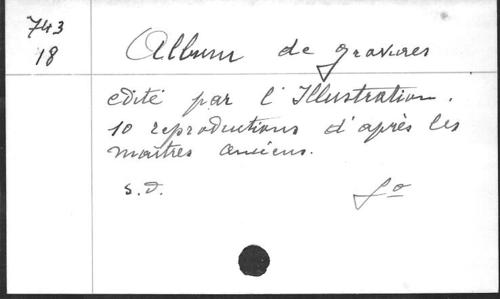 743
18
Album de gravures
edité par l'Illustration.
10 reproductions d'après les
maîtres anciens.
s.d. fo